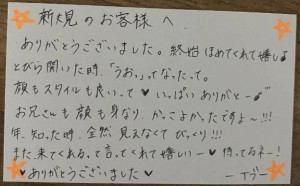 新規のお客様へ
ありがとうございました。終始ほめてくれて嬉しい♪
とびら開いた時、「うおっ」ってなったって。
顔もスタイルも良いって♥いっぱいありがとー♪
お兄さんも顔も身なり、かっこよかったですよ〜!!!
年、知った時、全然見えなくてびっくり!!!
また来てくれるって言ってくれて嬉しいー♥待ってるネー!
♥ありがとうございました♥